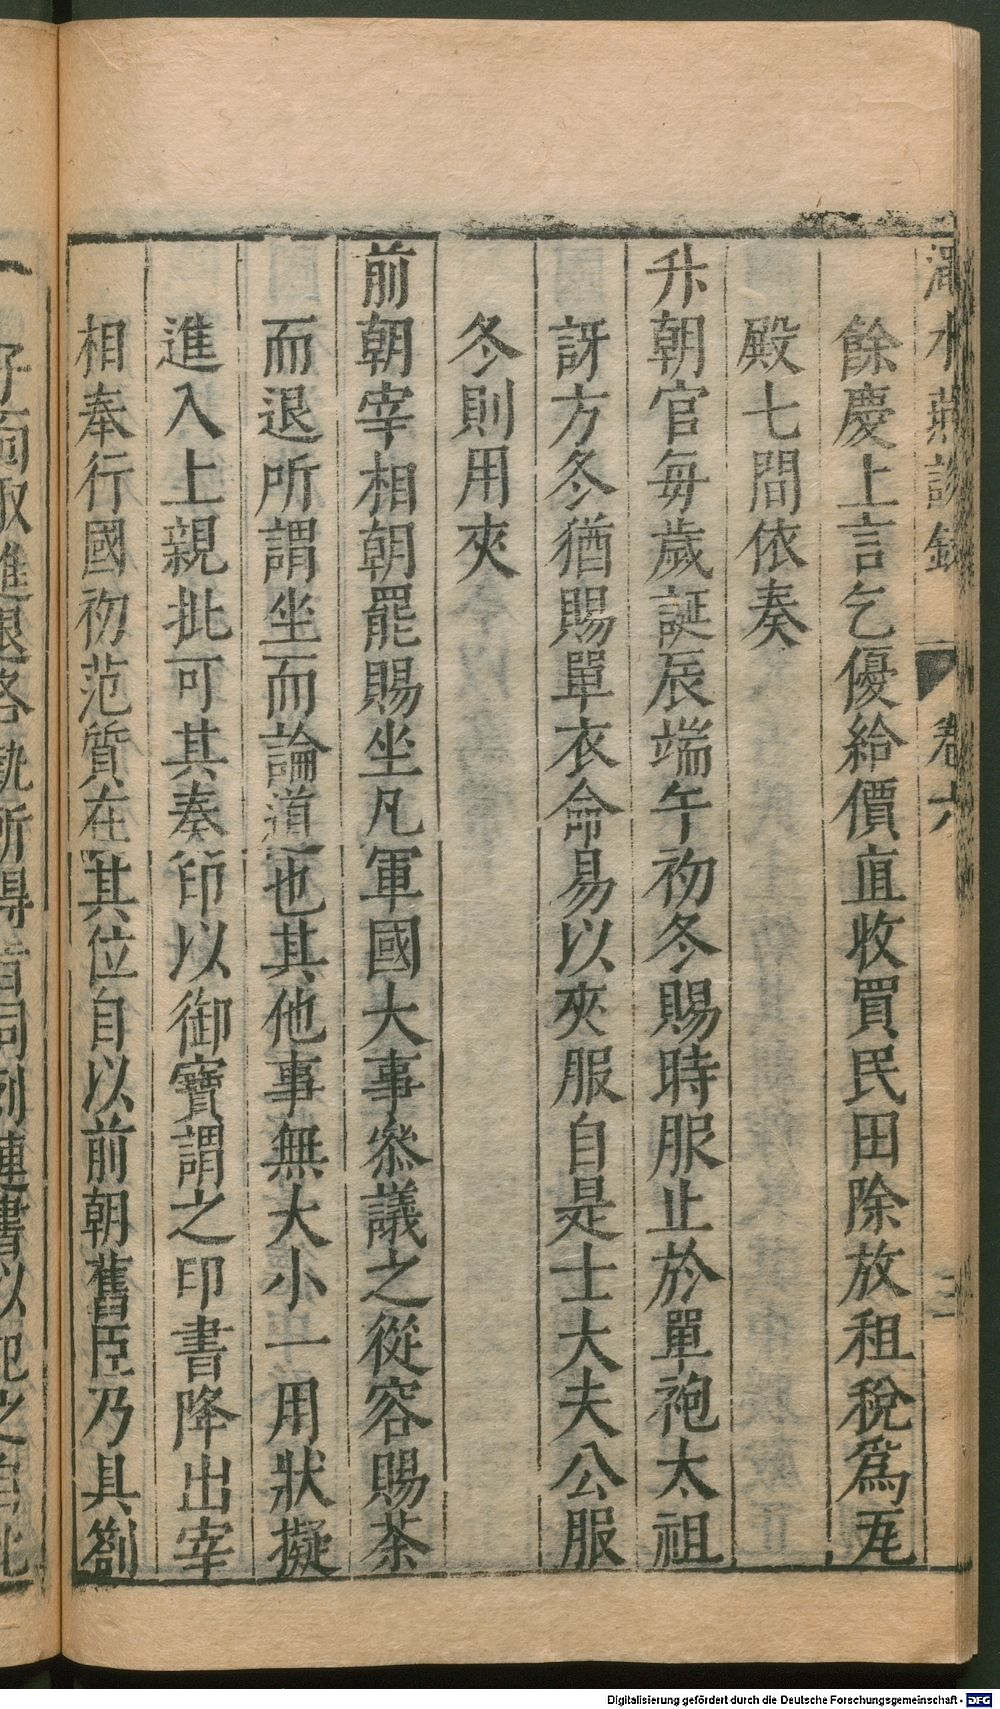 澠水燕談錄 卷六 三
餘慶上言乞優給價直收買民田除放租稅爲瓦
殿七間依奏
升朝官每歲誕辰端午初冬賜時服止於單袍太祖
訝方冬猶賜單衣命易以夾服自是士大夫公服
冬則用夾
前朝宰相朝罷賜坐凡軍國大事叅議之從容賜茶
而退所謂坐而論道也其他事無大小一用狀擬
進入上親批可其奏印以御寶謂之印書降出宰
相奉行國初范質在其位自以前朝舊臣乃具劄
Digitalisierung gefördert durch die Deutsche Forschungsgemeinschaft - DFG